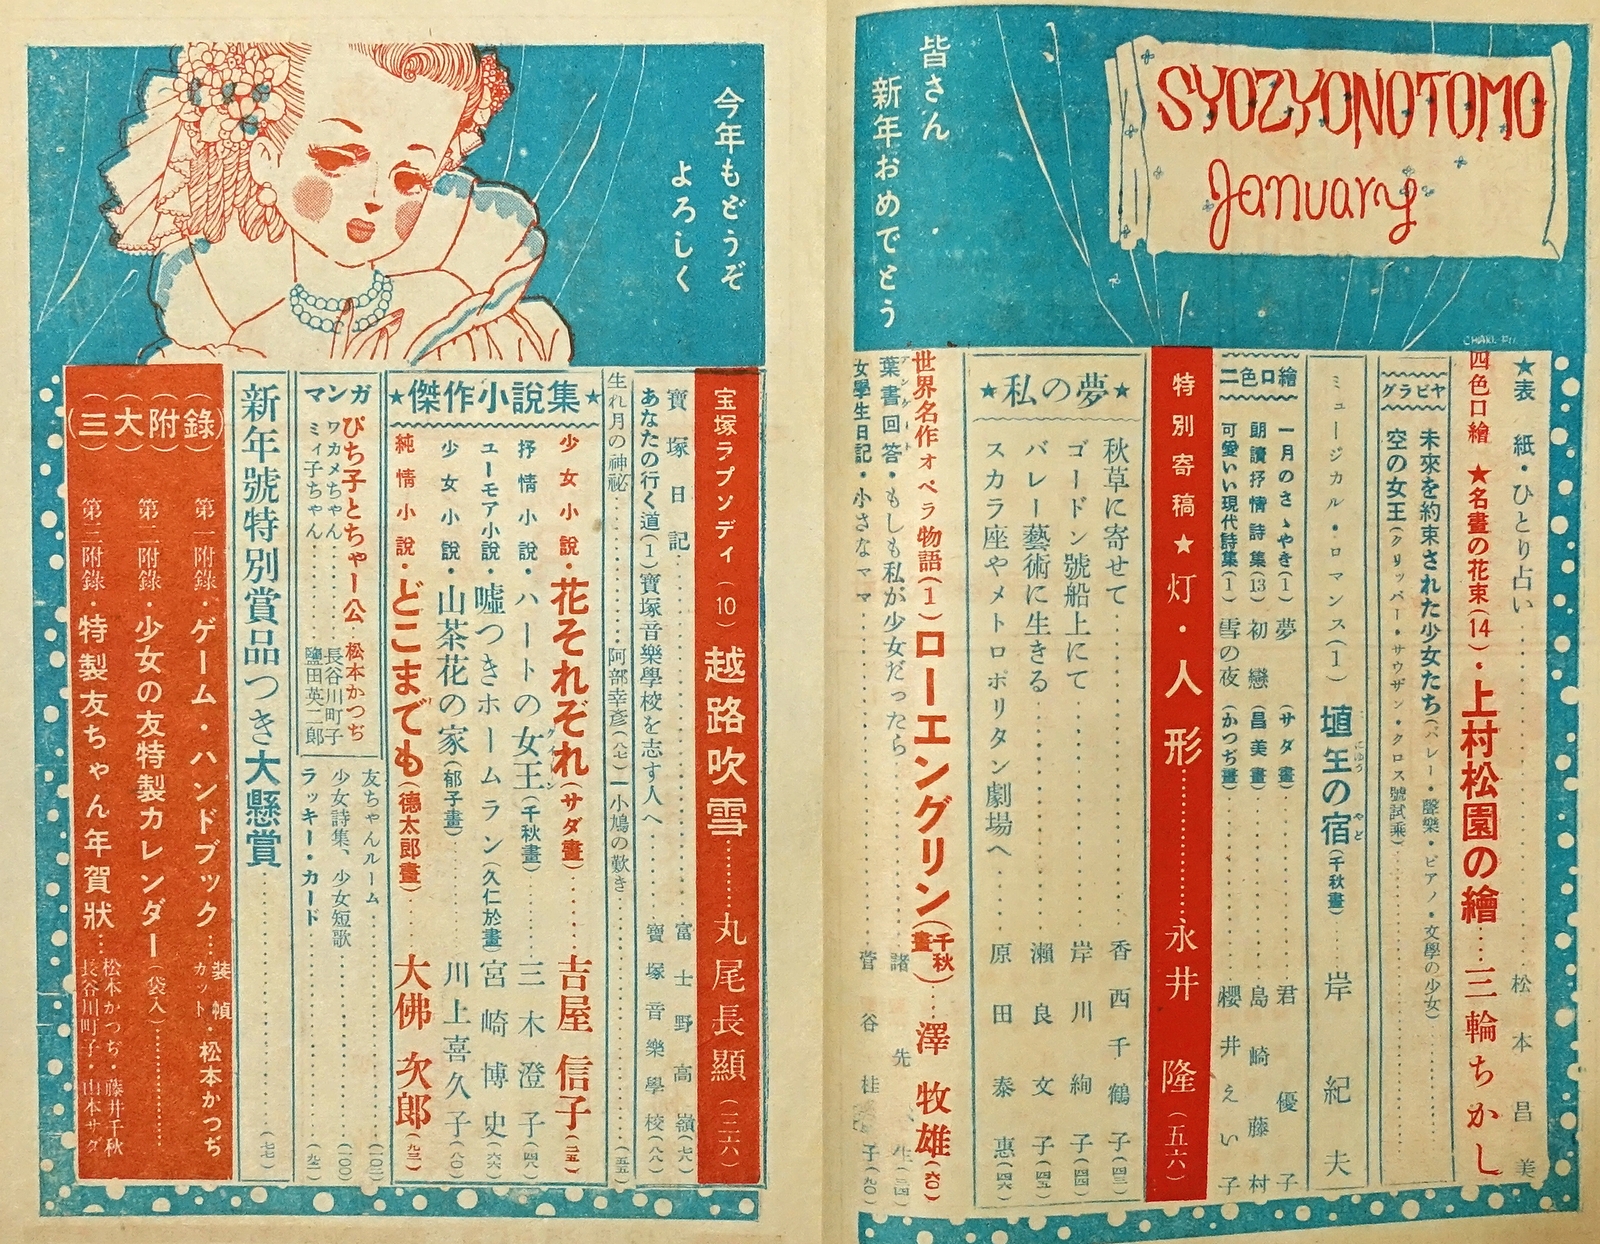 SYOZYONOTOMO
January
皆さん
新年おめでとう
今年もどうぞ
よろしく
★表紙・ひとり占い 松本昌美
四色口繪 ★名畫の花束(14)・上村松園の繪 三輪ちかし
グラビヤ
未來を約束された少女たち(バレー・聲樂・ピアノ・文學の少女)
空の女王(クリッパー・サウザン・クロス號試乘)
ミュージカル・ロマンス(1) 埴生の宿(千秋畫) 岸紀夫
二色口繪
一月のさゝやき(1) 夢 (サダ畫) 君優子
朗讀抒情詩集(13) 初戀 (昌美畫) 島崎藤村
可愛いい現代詩集(1) 雪の夜 (かつぢ畫) 櫻井えい子
特別寄稿★灯・人形 永井隆 (五六)
★私の夢★
秋草に寄せて 香西千鶴子(四三)
ゴードン號船上にて 岸川絢子(四四)
バレー藝術に生きる 瀬良文子(四五)
スカラ座やメトロポリタン劇場へ 原田泰惠(四六)
世界名作オペラ物語(1) ローエングリン(千秋畫) 澤牧雄(六〇)
葉書回答・もしも私が少女だったら 諸先生(三四)
女學生日記・小さなママ 菅谷桂子(九〇)
宝塚ラプソディ(10) 越路吹雪 丸尾長顯 (三六)
寶塚日記 富士野高嶺(七八)
あなたの行く道(1) 寶塚音樂學校を志す人へ 寶塚音樂學校(八八)
生れ月の神祕 阿部幸彥(八七)―小鳩の歎き (五五)
★傑作小說集★
少女小說・花それぞれ(サダ畫) 吉屋信子(二五)
抒情小說・ハートの女王(千秋畫) 三木澄子(四八)
ユーモア小說・噓つきホームラン(久仁於畫) 宮崎博史(六六)
少女小說・山茶花の家(郁子畫) 川上喜久子(八〇)
純情小說・どこまでも(德太郎畫) 大佛次郎(九三)
マンガ
ぴち子とちゃー公・松本かつぢ
ワカメちゃん 長谷川町子
ミィ子ちゃん 鹽田英二郎
友ちゃんルーム (一〇二)
少女詩集、少女短歌 (一〇〇)
ラッキー・カード (九二)
新年號特別賞品つき大懸賞 (七七)
(三)(大)(附)(錄)
第一附錄・ゲーム・ハンドブック 裝幀カット・松本かつぢ
第二附錄・少女の友特製カレンダー(袋入)
第三附錄・特製友ちゃん年賀狀 松本かつぢ・藤井千秋
長谷川町子・山本サダ